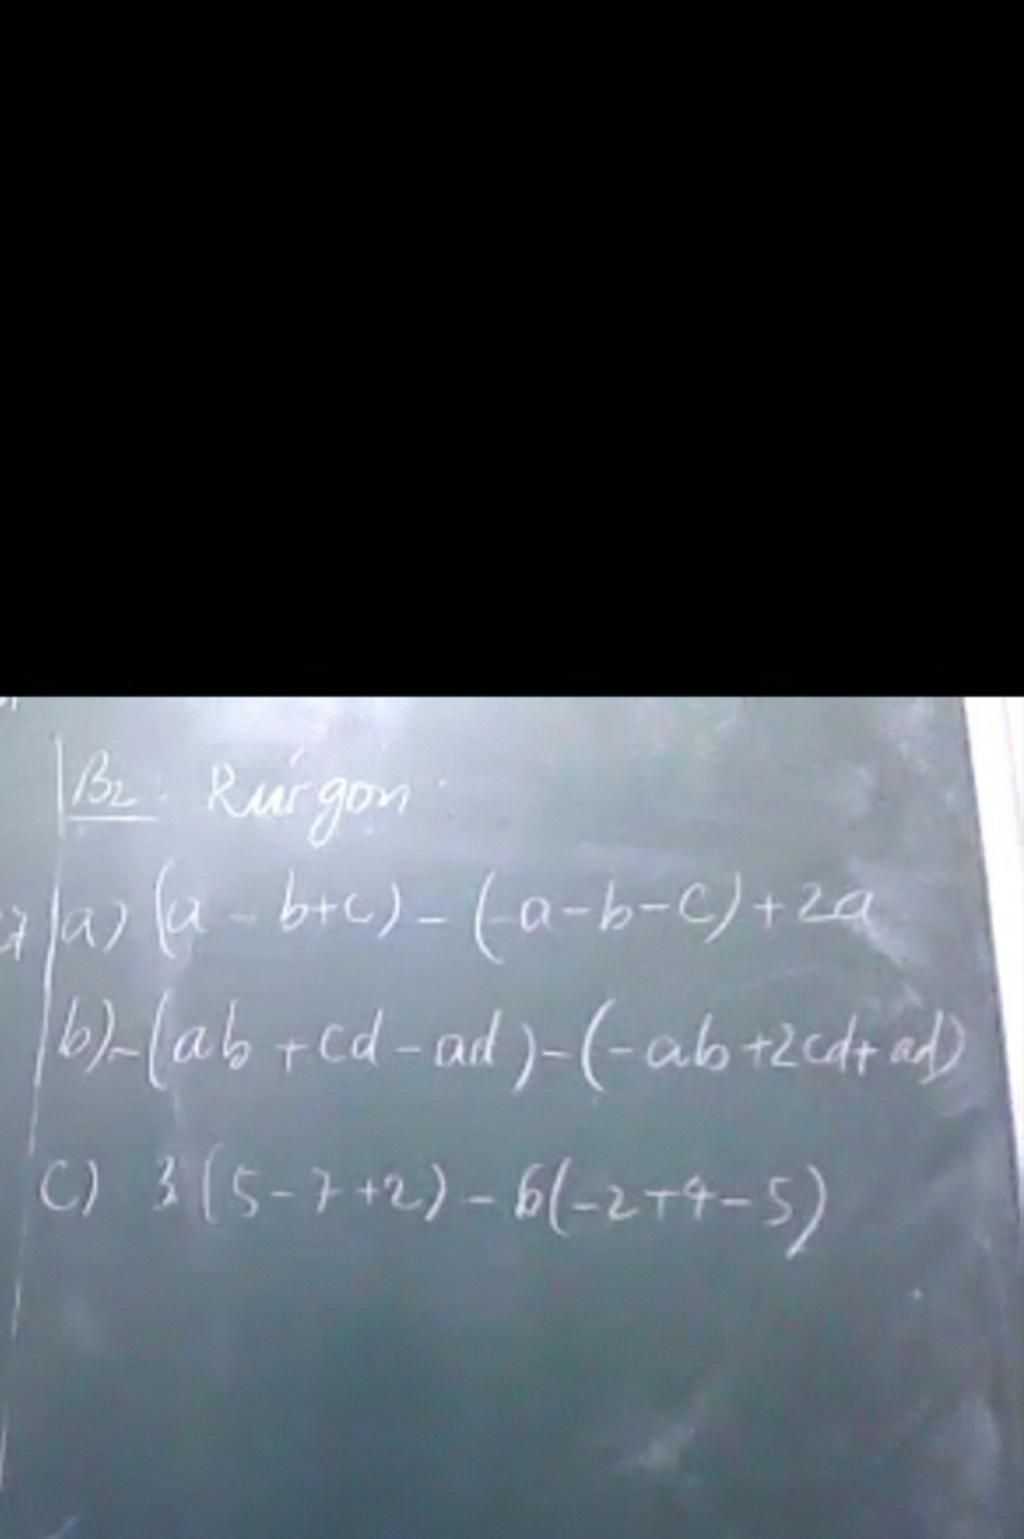 B2: Rút gọn:
a) (a - b+c) - (-a-b-c)+2a
b) -(ab +cd - ad) - (-ab+2cd+ad)
c) 3(5-7+2) - 6(-2+4-5)